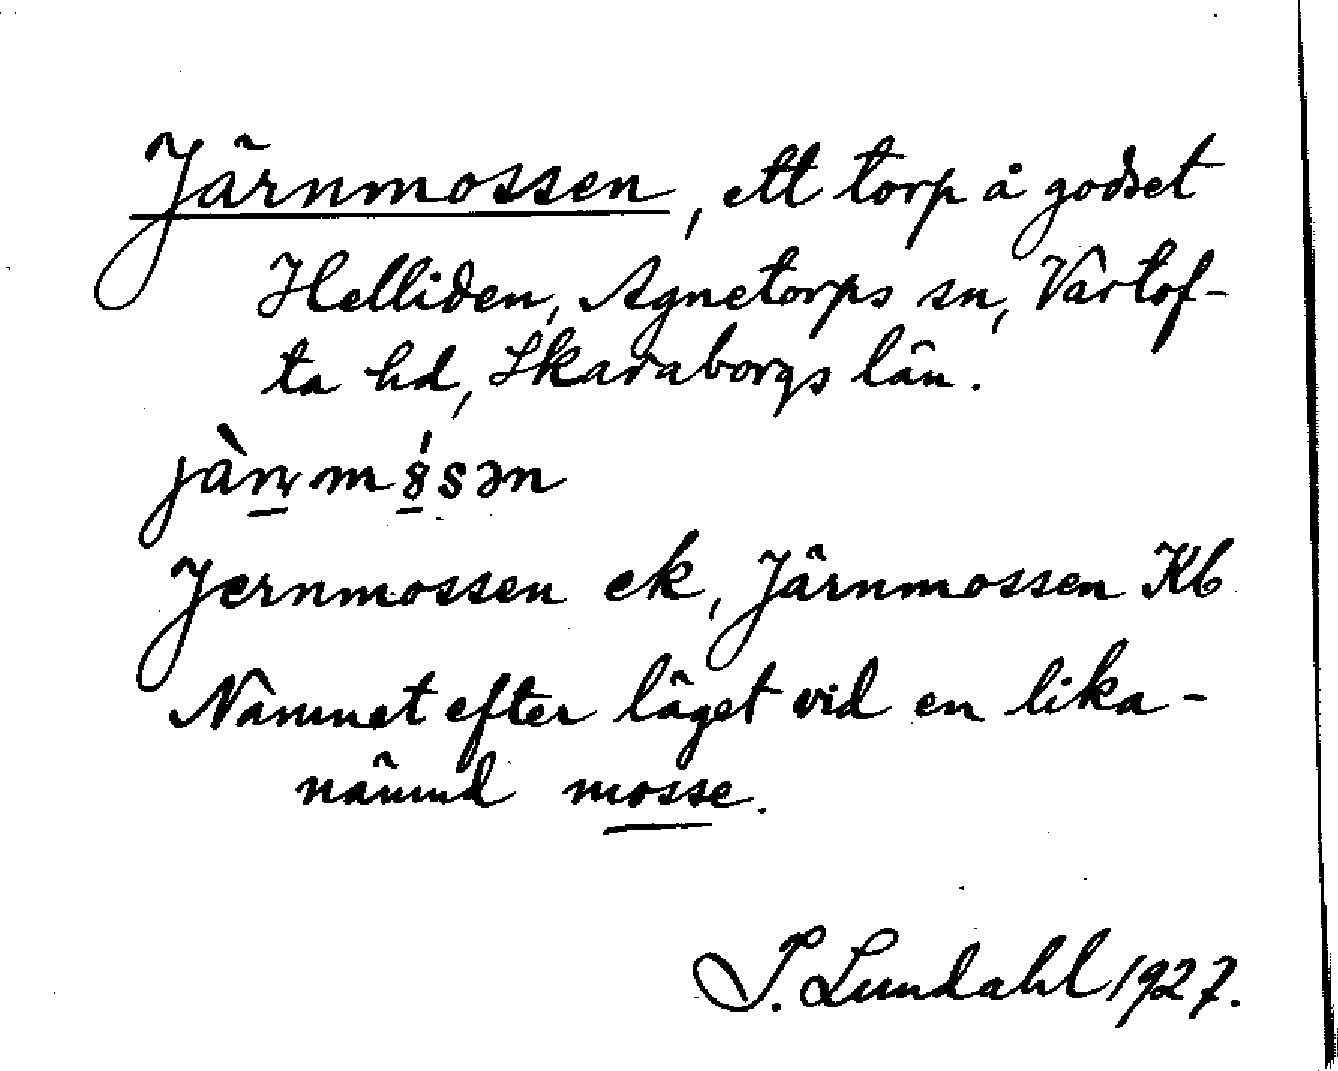 Järnmossen, ett torp å godset
Helliden, Agnetorps sn, Vartof-
ta hd, Skaraborgs län.
Jernmossen ek, Järnmossen Kb
Namnet efter läget vid en lika-
nämnd mosse.
I. Lundahl 1927.